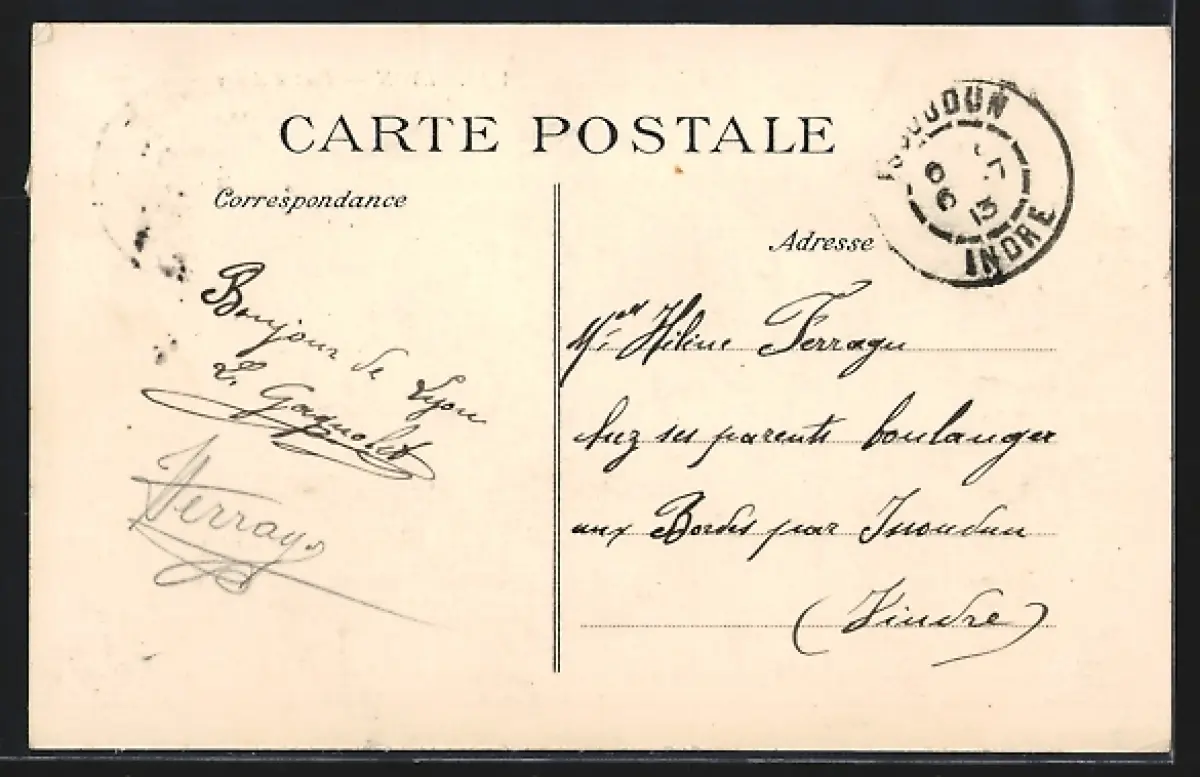 CARTE POSTALE
Correspondance
Adresse
ISSOUDUN
13
06
INDRE
Bonjour de Lyon
L. Gagnolet
Ferragu
Melle Hélène Ferragu
chez ses parents boulanger
aux Bordes par Issoudun
(Indre)